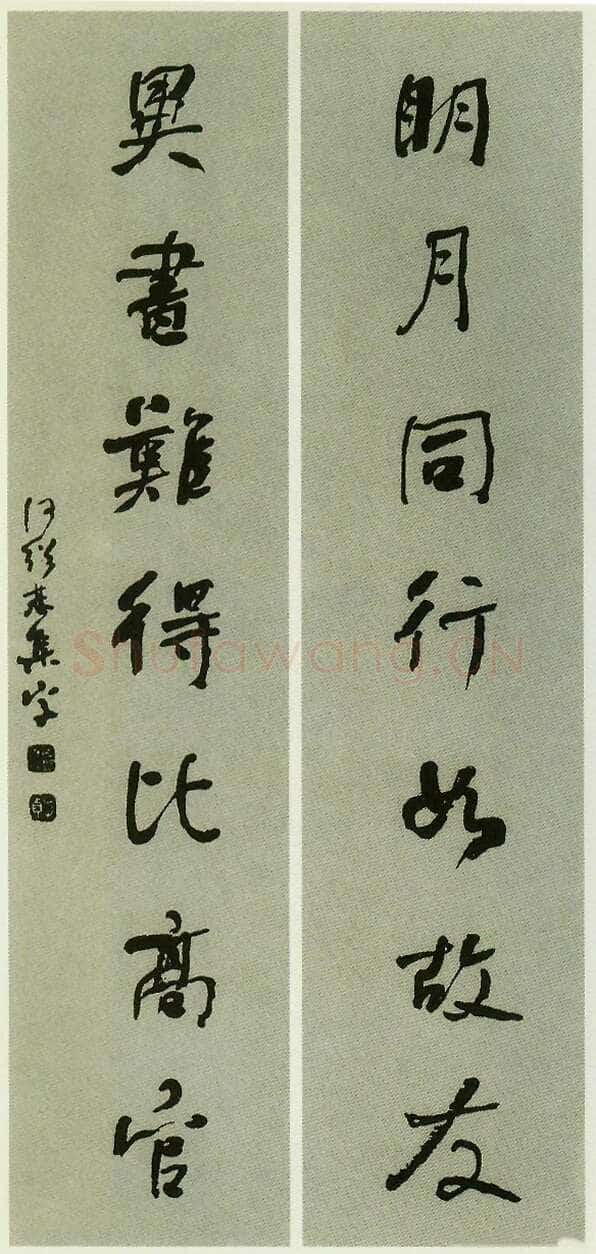 明月同行如故友
異書難得比高官
何紹基集字
Shufawang.CN